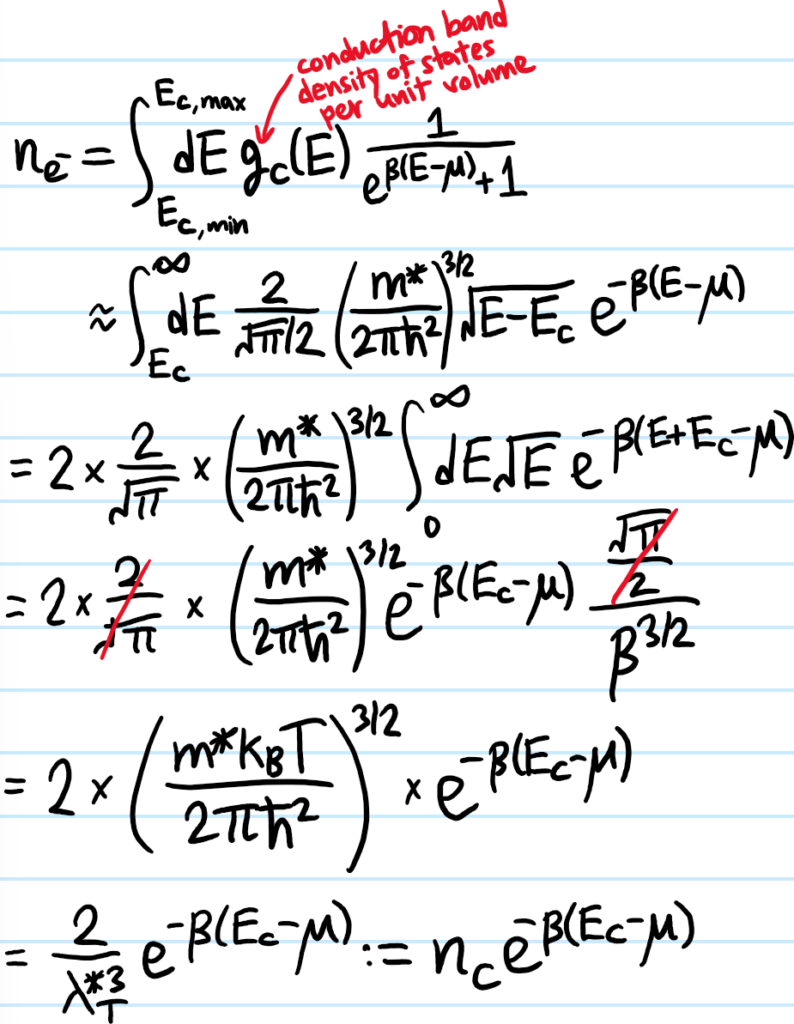 conduction band
density of states
per unit volume
n_{e^-} = ∫_{E_{c,min}}^{E_{c,max}} dE g_c(E) \frac{1}{e^{β(E-μ)}+1}
≈ ∫_{E_c}^{∞} dE \frac{2}{√π/2} (\frac{m*}{2πħ^2})^{3/2} √{E-E_c} e^{-β(E-μ)}
= 2 × \frac{2}{√π} × (\frac{m*}{2πħ^2})^{3/2} ∫_0^∞ dE √E e^{-β(E+E_c-μ)}
= 2 × \frac{2}{√π} × (\frac{m*}{2πħ^2})^{3/2} e^{-β(E_c-μ)} \frac{\frac{√π}{2}}{β^{3/2}}
= 2 × (\frac{m* k_B T}{2πħ^2})^{3/2} × e^{-β(E_c-μ)}
= \frac{2}{λ_T^{*3}} e^{-β(E_c-μ)} := n_c e^{-β(E_c-μ)}